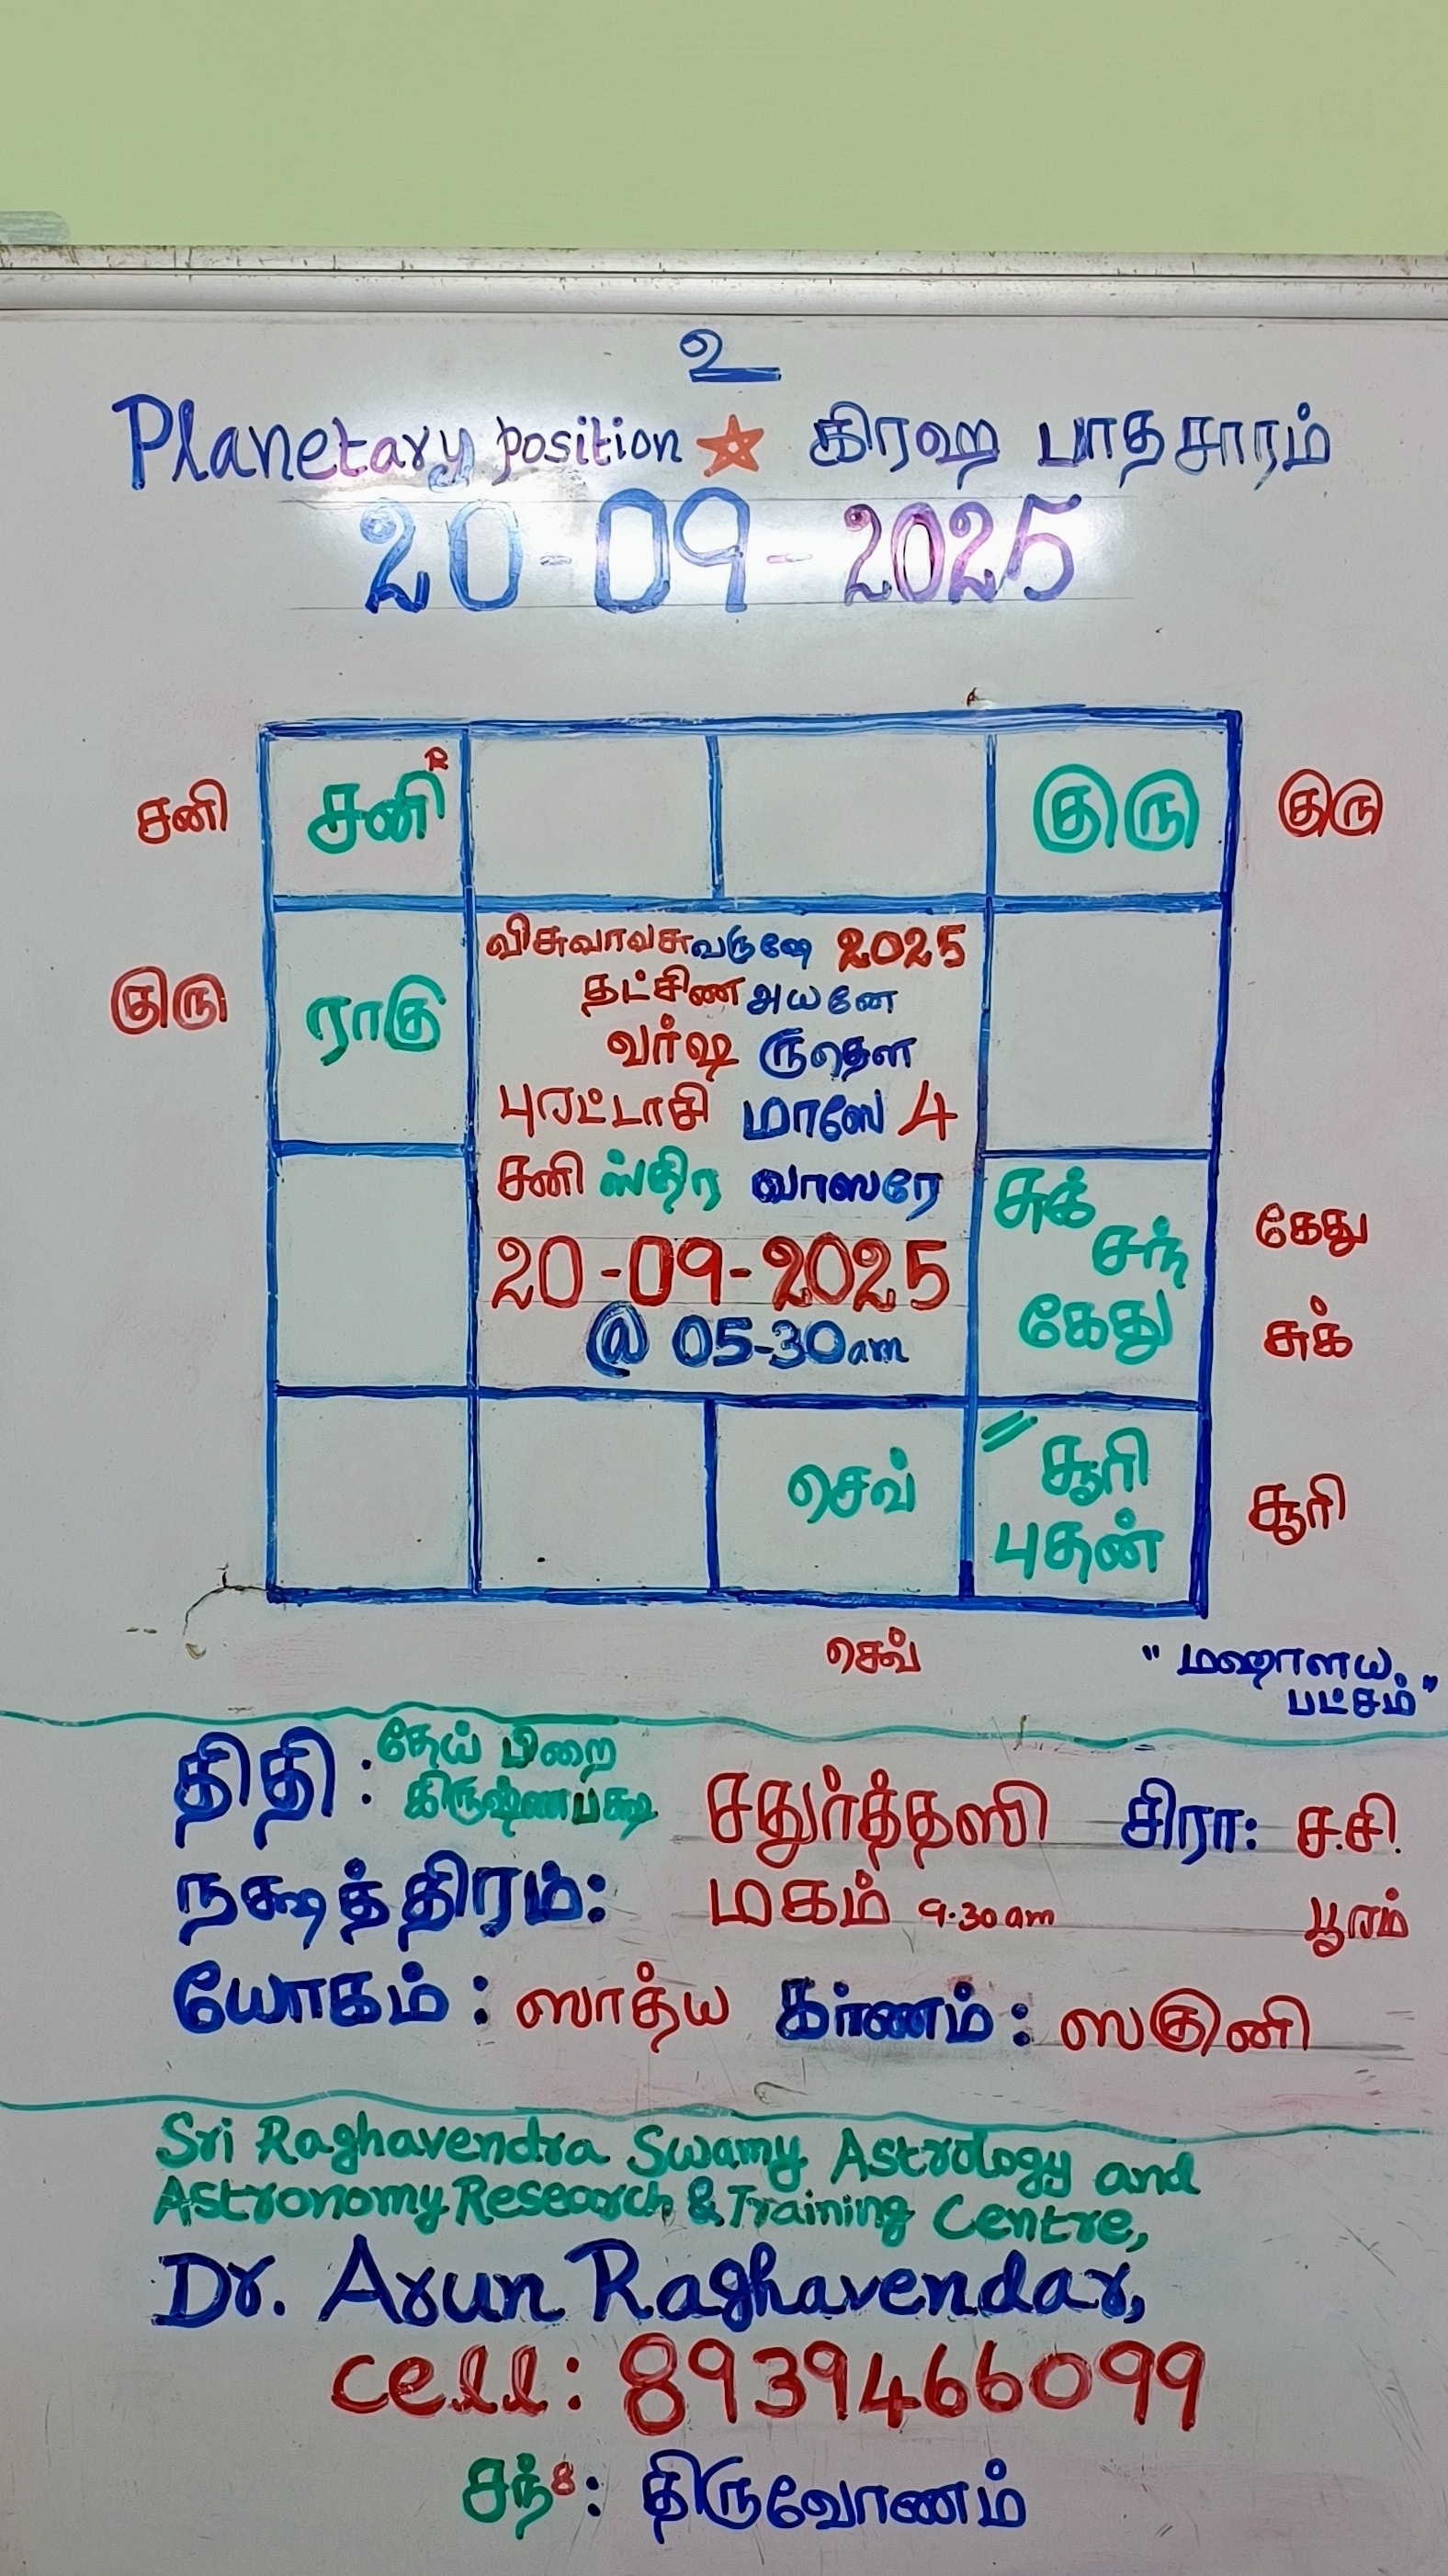 உ
Planetary position ☆ கிரஹ பாதசாரம்
20-09-2025
சனி சனி R குரு குரு
குரு ராகு
விசுவாவசுவருஷே 2025
தட்சிண அயனே
வர்ஷ ருதௌ
புரட்டாசி மாஸே 4
சனி ஸ்திர வாஸரே
20-09-2025
@ 05-30am
சுக்
சந்
கேது
கேது
சுக்
செவ்
சூரி
புதன்
சூரி
செவ்
"மஹாளய
பட்சம்"
திதி : தேய் பிறை
கிருஷ்ணபக்ஷ சதுர்த்தஸி சிரா: ச.சி.
நக்ஷத்திரம்: மகம் 9.30am பூரம்
யோகம் : ஸாத்ய கர்ணம் : ஸகுனி
Sri Raghavendra Swamy Astrology and
Astronomy Research & Training Centre,
Dr. Arun Raghavendar,
cell: 8939466099
சந்8: திருவோணம்